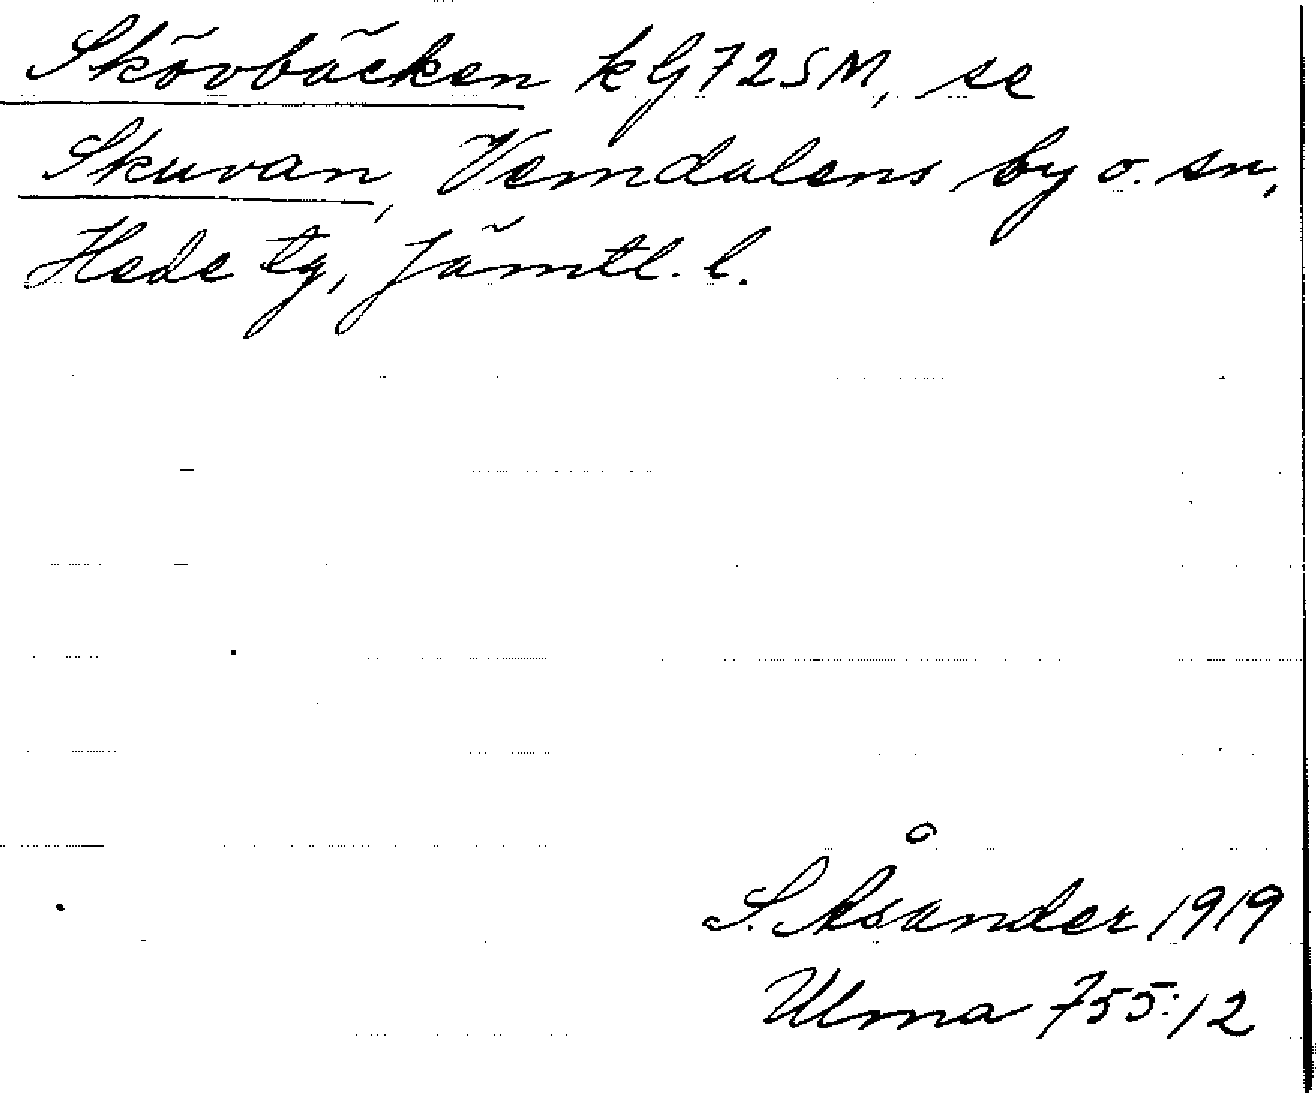 Skövbäcken k G72SM, se
Skuvan, Vemdalens by o. sn,
Hede tg, Jämtl. l.
S. Åsander 1919
Ulma 755:12